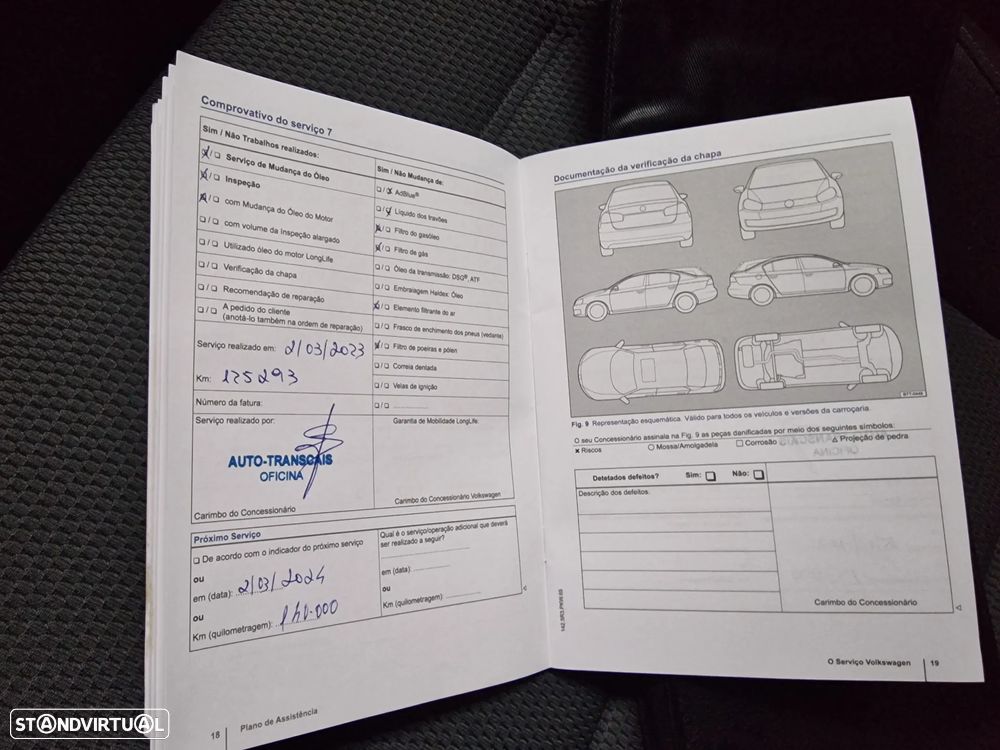 Comprovativo do serviço 7
Sim / Não Trabalhos realizados:
Serviço de Mudança do Óleo
Inspeção
com Mudança do Óleo do Motor
com volume da Inspeção alargado
Utilizado óleo do motor LongLife
Verificação da chapa
Recomendação de reparação
A pedido do cliente
(anotá-lo também na ordem de reparação)
Serviço realizado em: 2/03/2023
Km: 125293
Número da fatura:
Serviço realizado por:
AUTO-TRANSCAIS
OFICINA
Carimbo do Concessionário
Sim / Não Mudança de:
AdBlue®
Líquido dos travões
Filtro do gasóleo
Filtro de gás
Óleo da transmissão: DSG®, ATF
Embraiagem Haldex: Óleo
Elemento filtrante do ar
Frasco de enchimento dos pneus (vedante)
Filtro de poeiras e pólen
Correia dentada
Velas de ignição
Garantia de Mobilidade LongLife:
Carimbo do Concessionário Volkswagen
Próximo Serviço
De acordo com o indicador do próximo serviço
ou
em (data): 2/03/2024
ou
Km (quilometragem): 140.000
Qual é o serviço/operação adicional que deverá
ser realizado a seguir?
em (data):
ou
Km (quilometragem):
18 Plano de Assistência
Documentação da verificação da chapa
B7T-0449
Fig. 9 Representação esquemática. Válido para todos os veículos e versões da carroçaria.
O seu Concessionário assinala na Fig. 9 as peças danificadas por meio dos seguintes símbolos:
× Riscos ○ Mossa/Amolgadela □ Corrosão △ Projeção de pedra
Detetados defeitos? Sim: Não:
Descrição dos defeitos.
Carimbo do Concessionário
142.5R3.PKW.69
O Serviço Volkswagen 19
STANDVIRTUAL